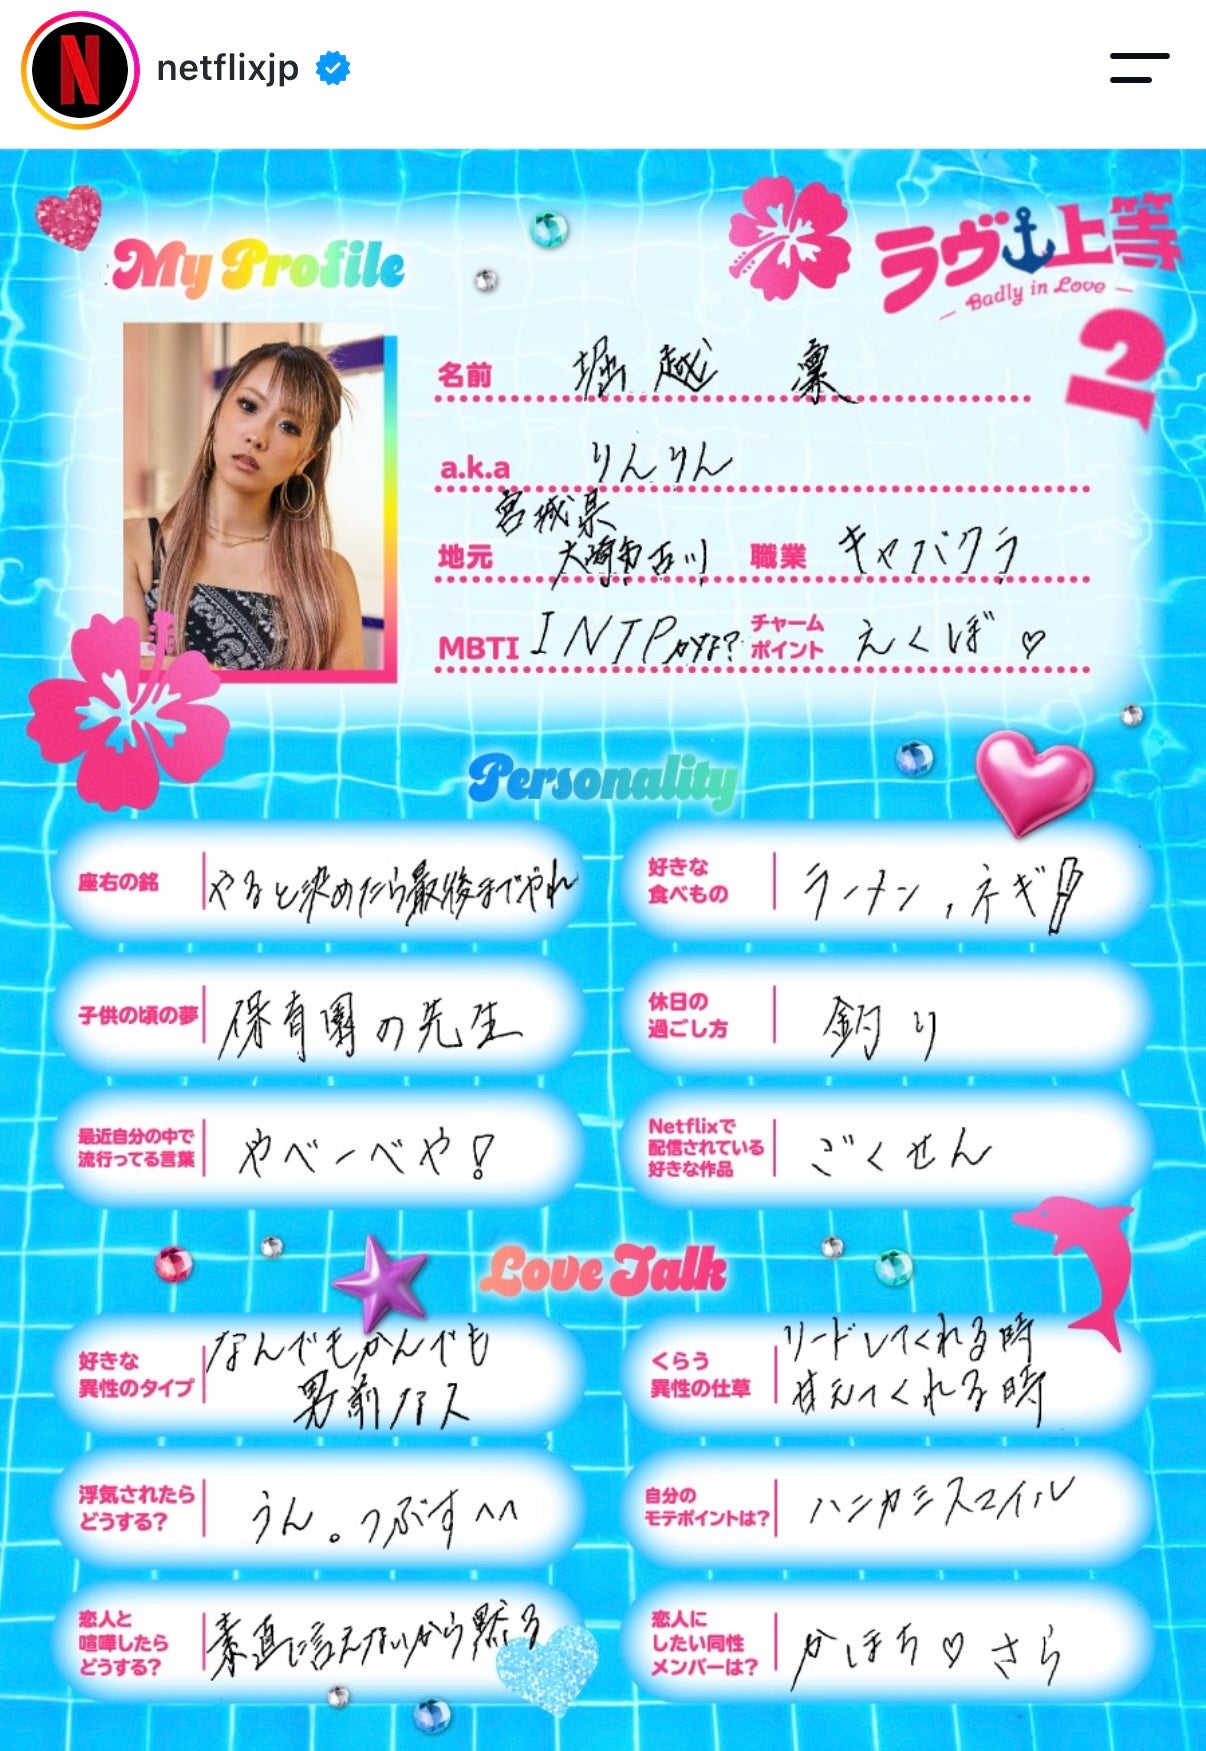 netflixjp
My Profile
ラヴ上等
Badly in Love
2
名前 堀越 凛
a.k.a りんりん
地元 宮城県
大崎市古川
職業 キャバクラ
MBTI INTPかな?
チャーム
ポイント えくぼ♡
Personality
座右の銘 やると決めたら最後までやれ
好きな
食べもの ラーメン,ネギ
子供の頃の夢 保育園の先生
休日の
過ごし方 釣り
最近自分の中で
流行ってる言葉 やべーべや!
Netflixで
配信されている
好きな作品 ごくせん
Love Talk
好きな
異性のタイプ なんでもかんでも
男前な人
くらう
異性の仕草 リードしてくれる時
甘えてくれる時
浮気されたら
どうする? うん。つぶす^^
自分の
モテポイントは? ハニカミスマイル
恋人と
喧嘩したら
どうする? 素直に言えないから黙る
恋人に
したい同性
メンバーは? かほち♡さら